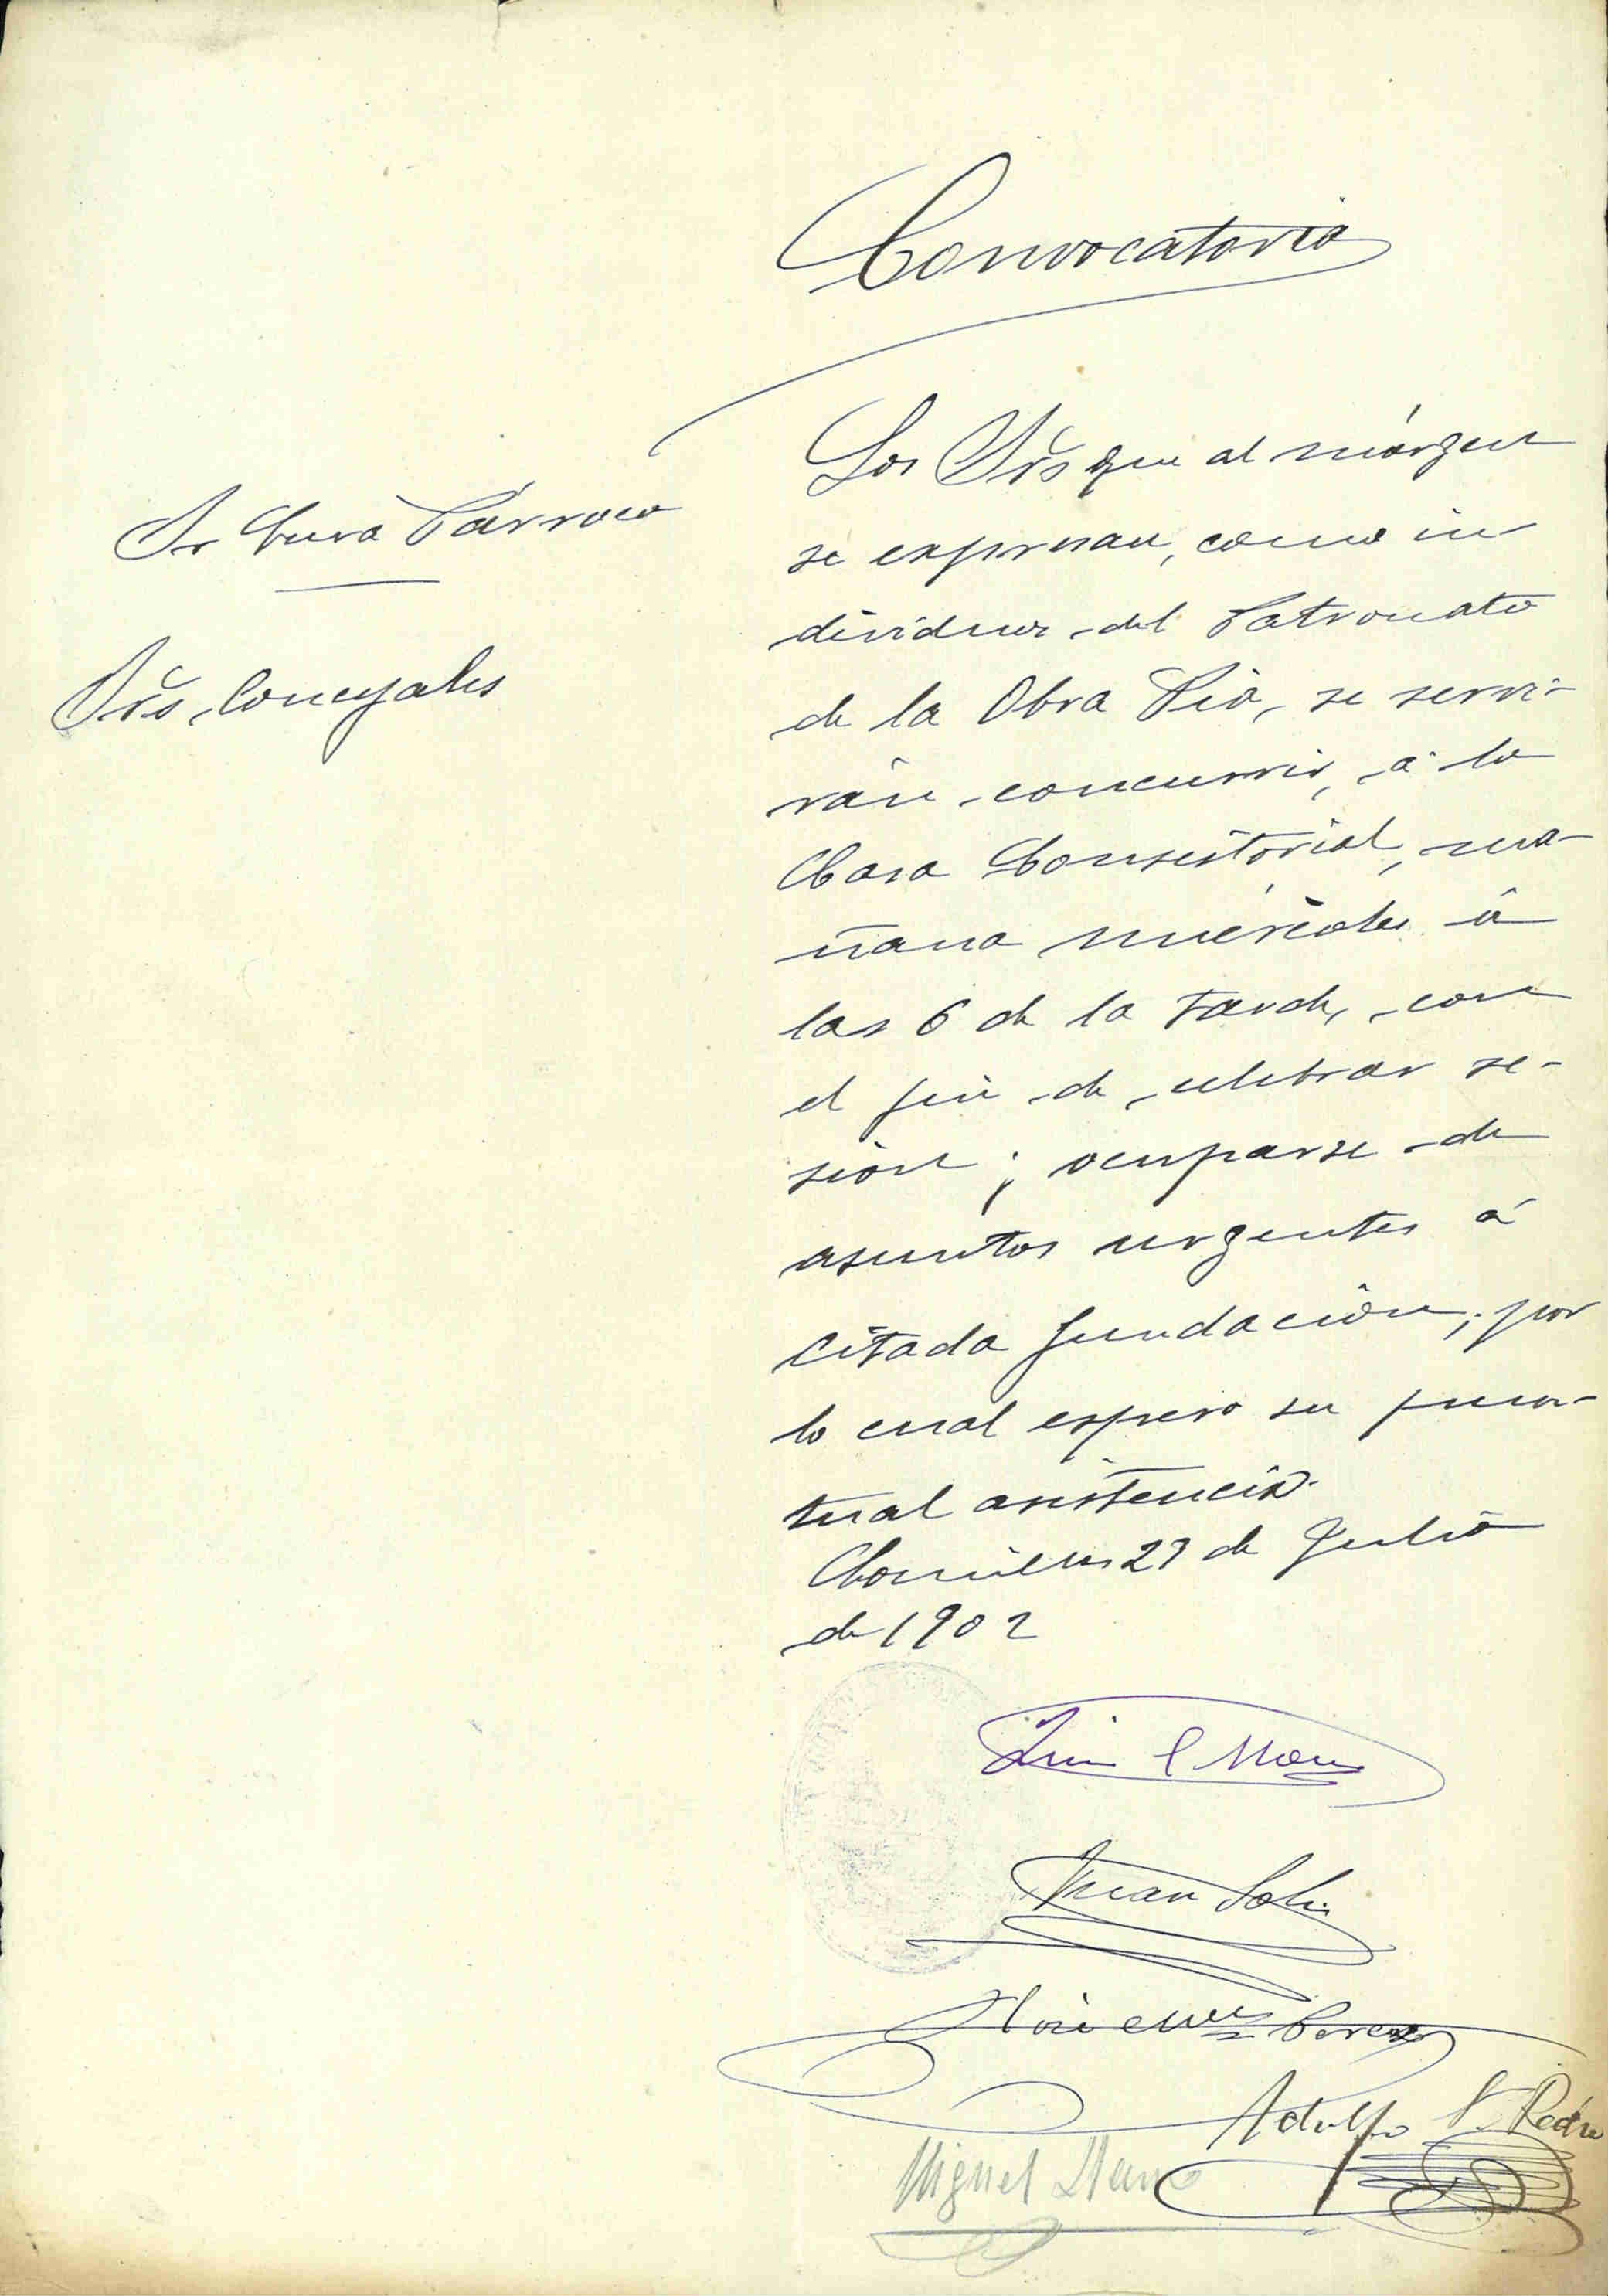 Convocatoria
Sr Cura Párroco
Srs. Concejales
Los Srs que al márgen
se expresan, como in
dividuos del Patronato
de la Obra Pia, se servi-
rán concurrir, á la
Casa Consistorial, ma-
ñana miércoles á
las 6 de la tarde, con
el fin de celebrar se-
sión; ocuparse de
asuntos urgentes á
citada fundación; por
lo cual espero su pun-
tual asistencia.
29 de Julio
de 1902
Juan Solis
Perez
Adolfo S. Pedro
Miguel Llano